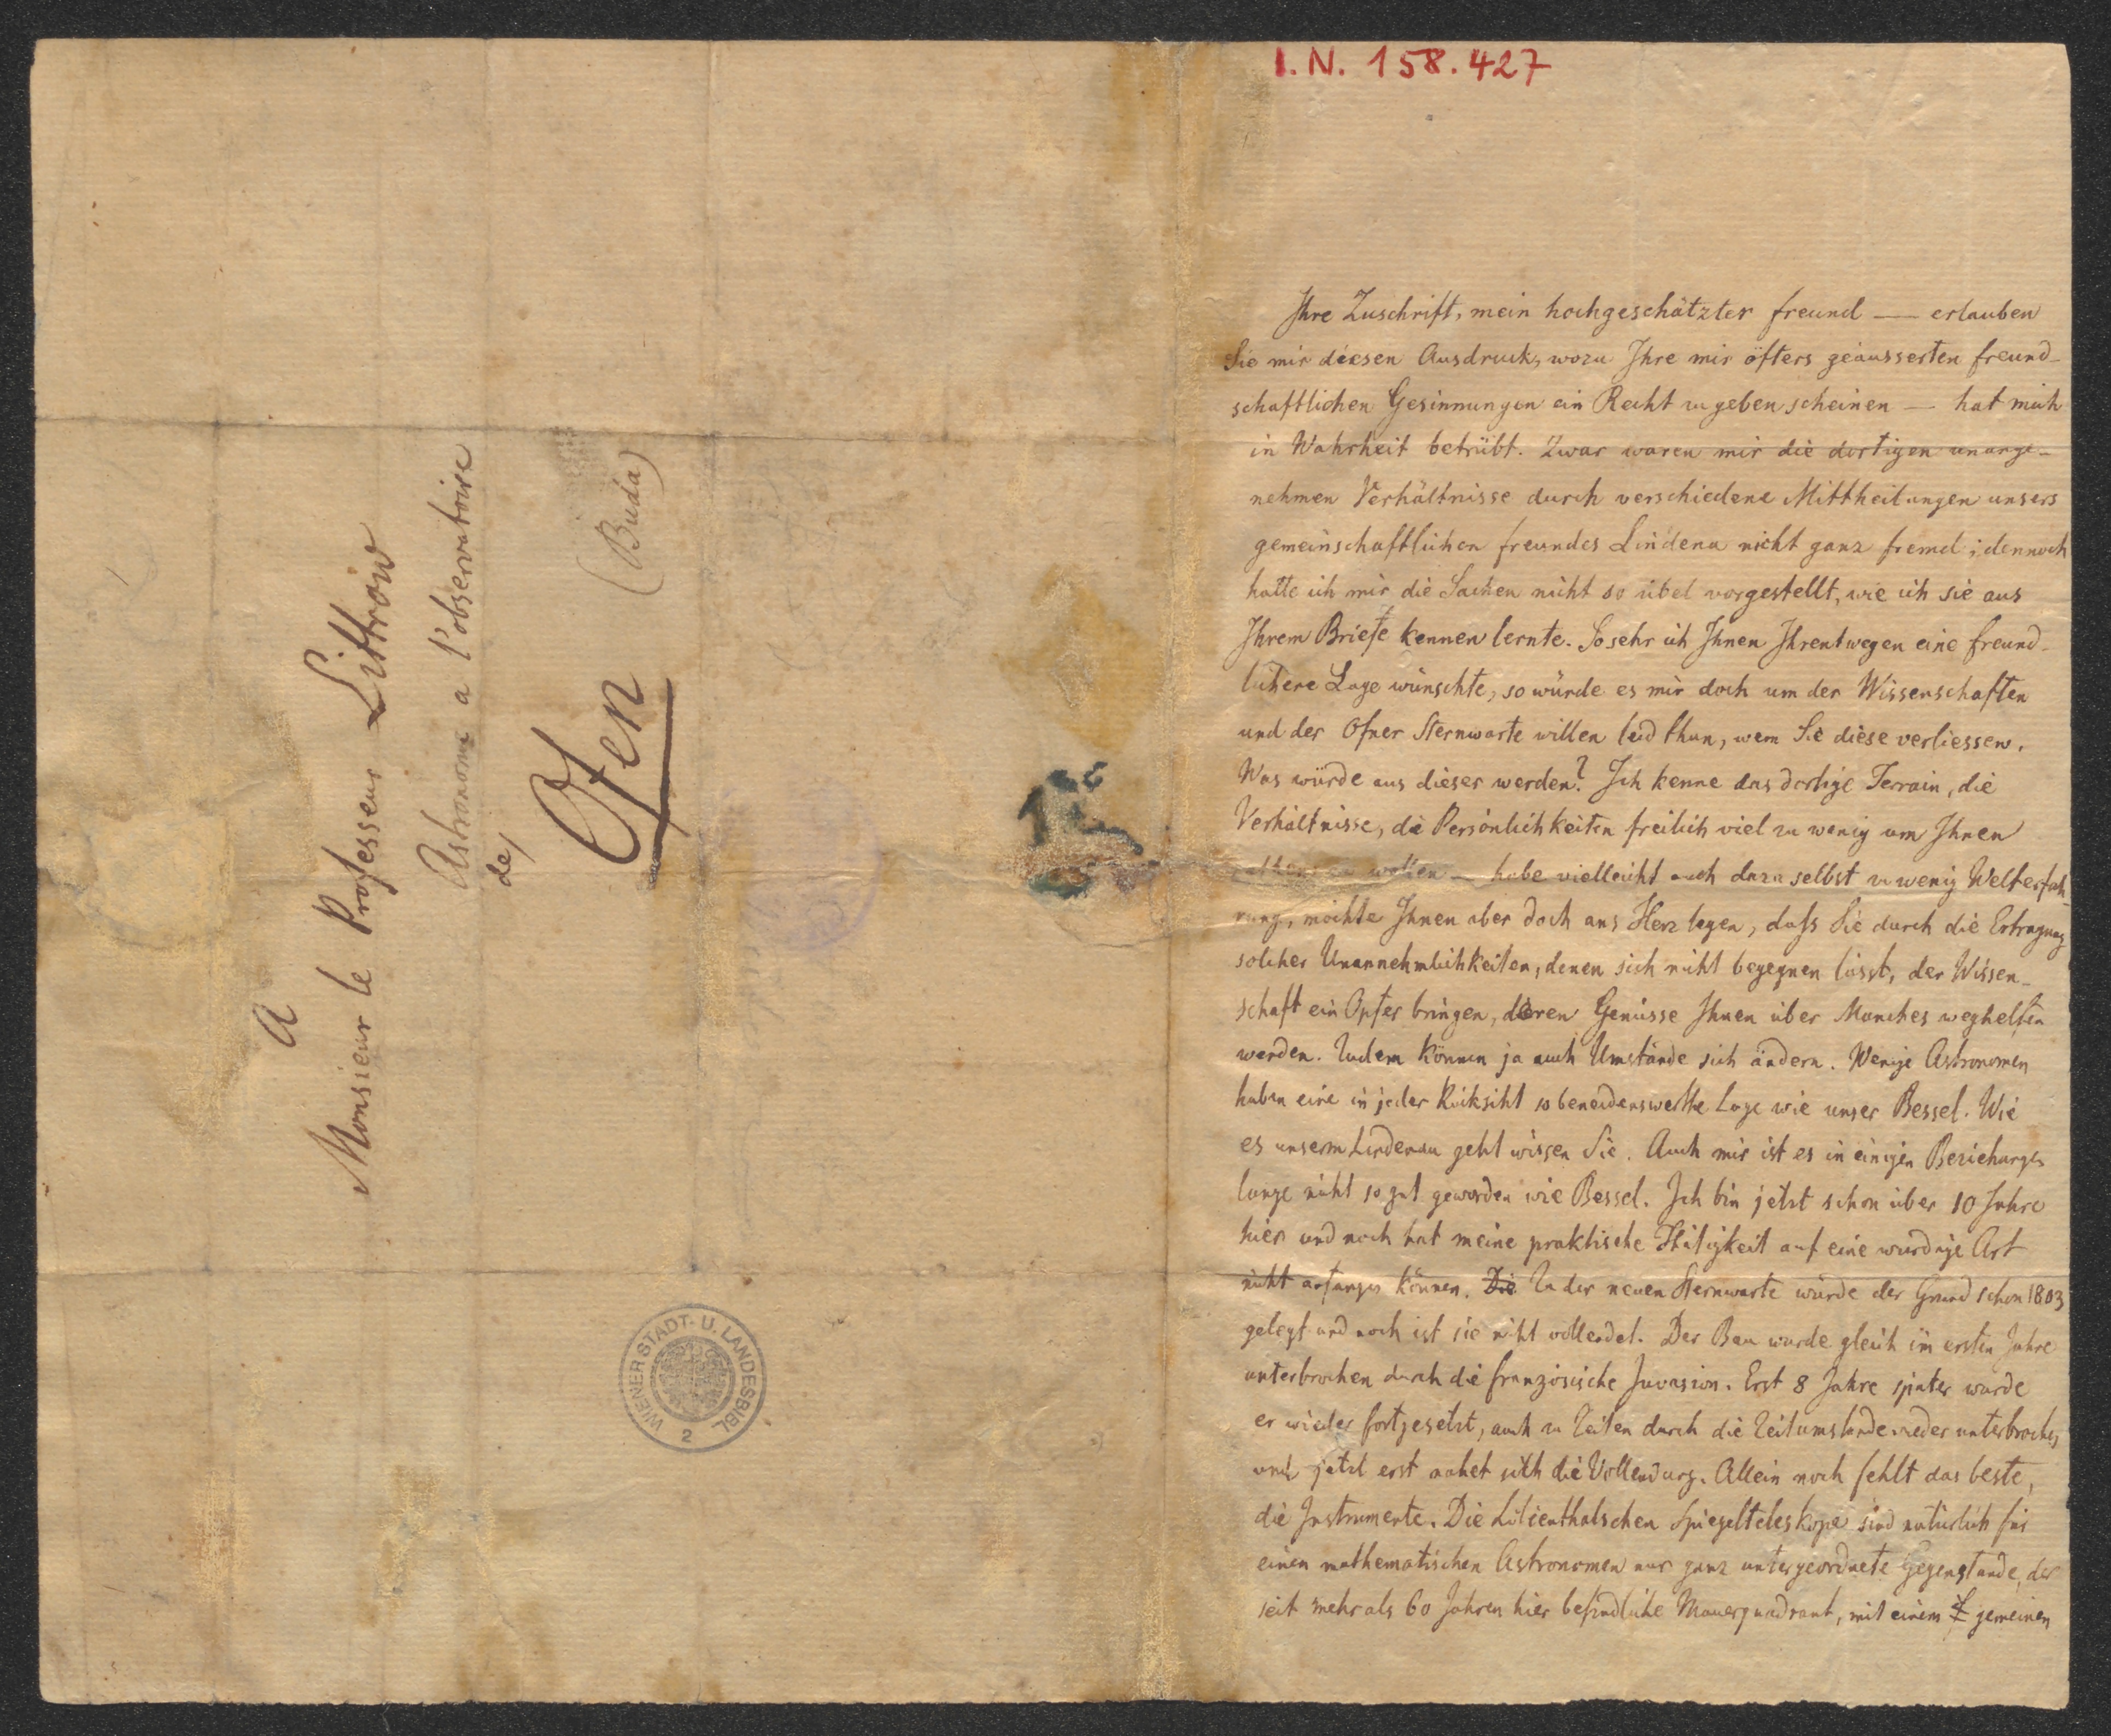 A
Monsieur le Professeur Littrow
Astronome a l'observatoire
de
Ofen
(Buda)
WIENER STADT- U. LANDESBIBL.
2
I. N. 158.427
Ihre Zuschrift, mein hochgeschätzter freund — erlauben
Sie mir diesen Ausdruck, wozu Ihre mir öfters geäusserten freund-
schaftlichen Gesinnungen ein Recht zu geben scheinen — hat mich
in Wahrheit betrübt. Zwar waren mir die dortigen unange-
nehmen Verhältnisse durch verschiedene Mittheilungen unsers
gemeinschaftlichen freundes Lindenau nicht ganz fremd; dennoch
hatte ich mir die Sachen nicht so übel vorgestellt, wie ich sie aus
Ihrem Briefe kennen lernte. So sehr ich Ihnen Ihrentwegen eine freund-
lichere Lage wünschte, so würde es mir doch um der Wissenschaften
und der Ofner Sternwarte willen leid thun, wenn Sie diese verliessen.
Was würde aus dieser werden? Ich kenne das dortige Terrain, die
Verhältnisse, die Persönlichkeiten freilich viel zu wenig um Ihnen
rathen zu wollen — habe vielleicht auch dazu selbst zu wenig Welterfah-
rung, möchte Ihnen aber doch ans Herz legen, dass Sie durch die Ertragung
solcher Unannehmlichkeiten, denen sich nicht begegnen lässt, der Wissen-
schaft ein Opfer bringen, deren Genüsse Ihnen über Manches weghelfen
werden. Zudem können ja auch Umstände sich ändern. Wenige Astronomen
haben eine in jeder Rücksicht so beneidenswerthe Lage wie unser Bessel. Wie
es unserm Lindenau geht wissen Sie. Auch mir ist es in einigen Beziehungen
lange nicht so gut geworden wie Bessel. Ich bin jetzt schon über 10 Jahre
hier und noch hat meine praktische Thätigkeit auf eine würdige Art
nicht anfangen können. Die Zu der neuen Sternwarte wurde der Grund schon 1803
gelegt und noch ist sie nicht vollendet. Der Bau wurde gleich im ersten Jahre
unterbrochen durch die französische Invasion. Erst 8 Jahre später wurde
er wieder fortgesetzt, auch zu Zeiten durch die Zeitumstände wieder unterbrochen
und jetzt erst nahet sich die Vollendung. Allein noch fehlt das beste,
die Instrumente. Die Lilienthalschen Spiegelteleskope sind natürlich für
einen mathematischen Astronomen nur ganz untergeordnete Gegenstände, der
seit mehr als 60 Jahren hier befindliche Mauerquadrant, mit einem gemeinen